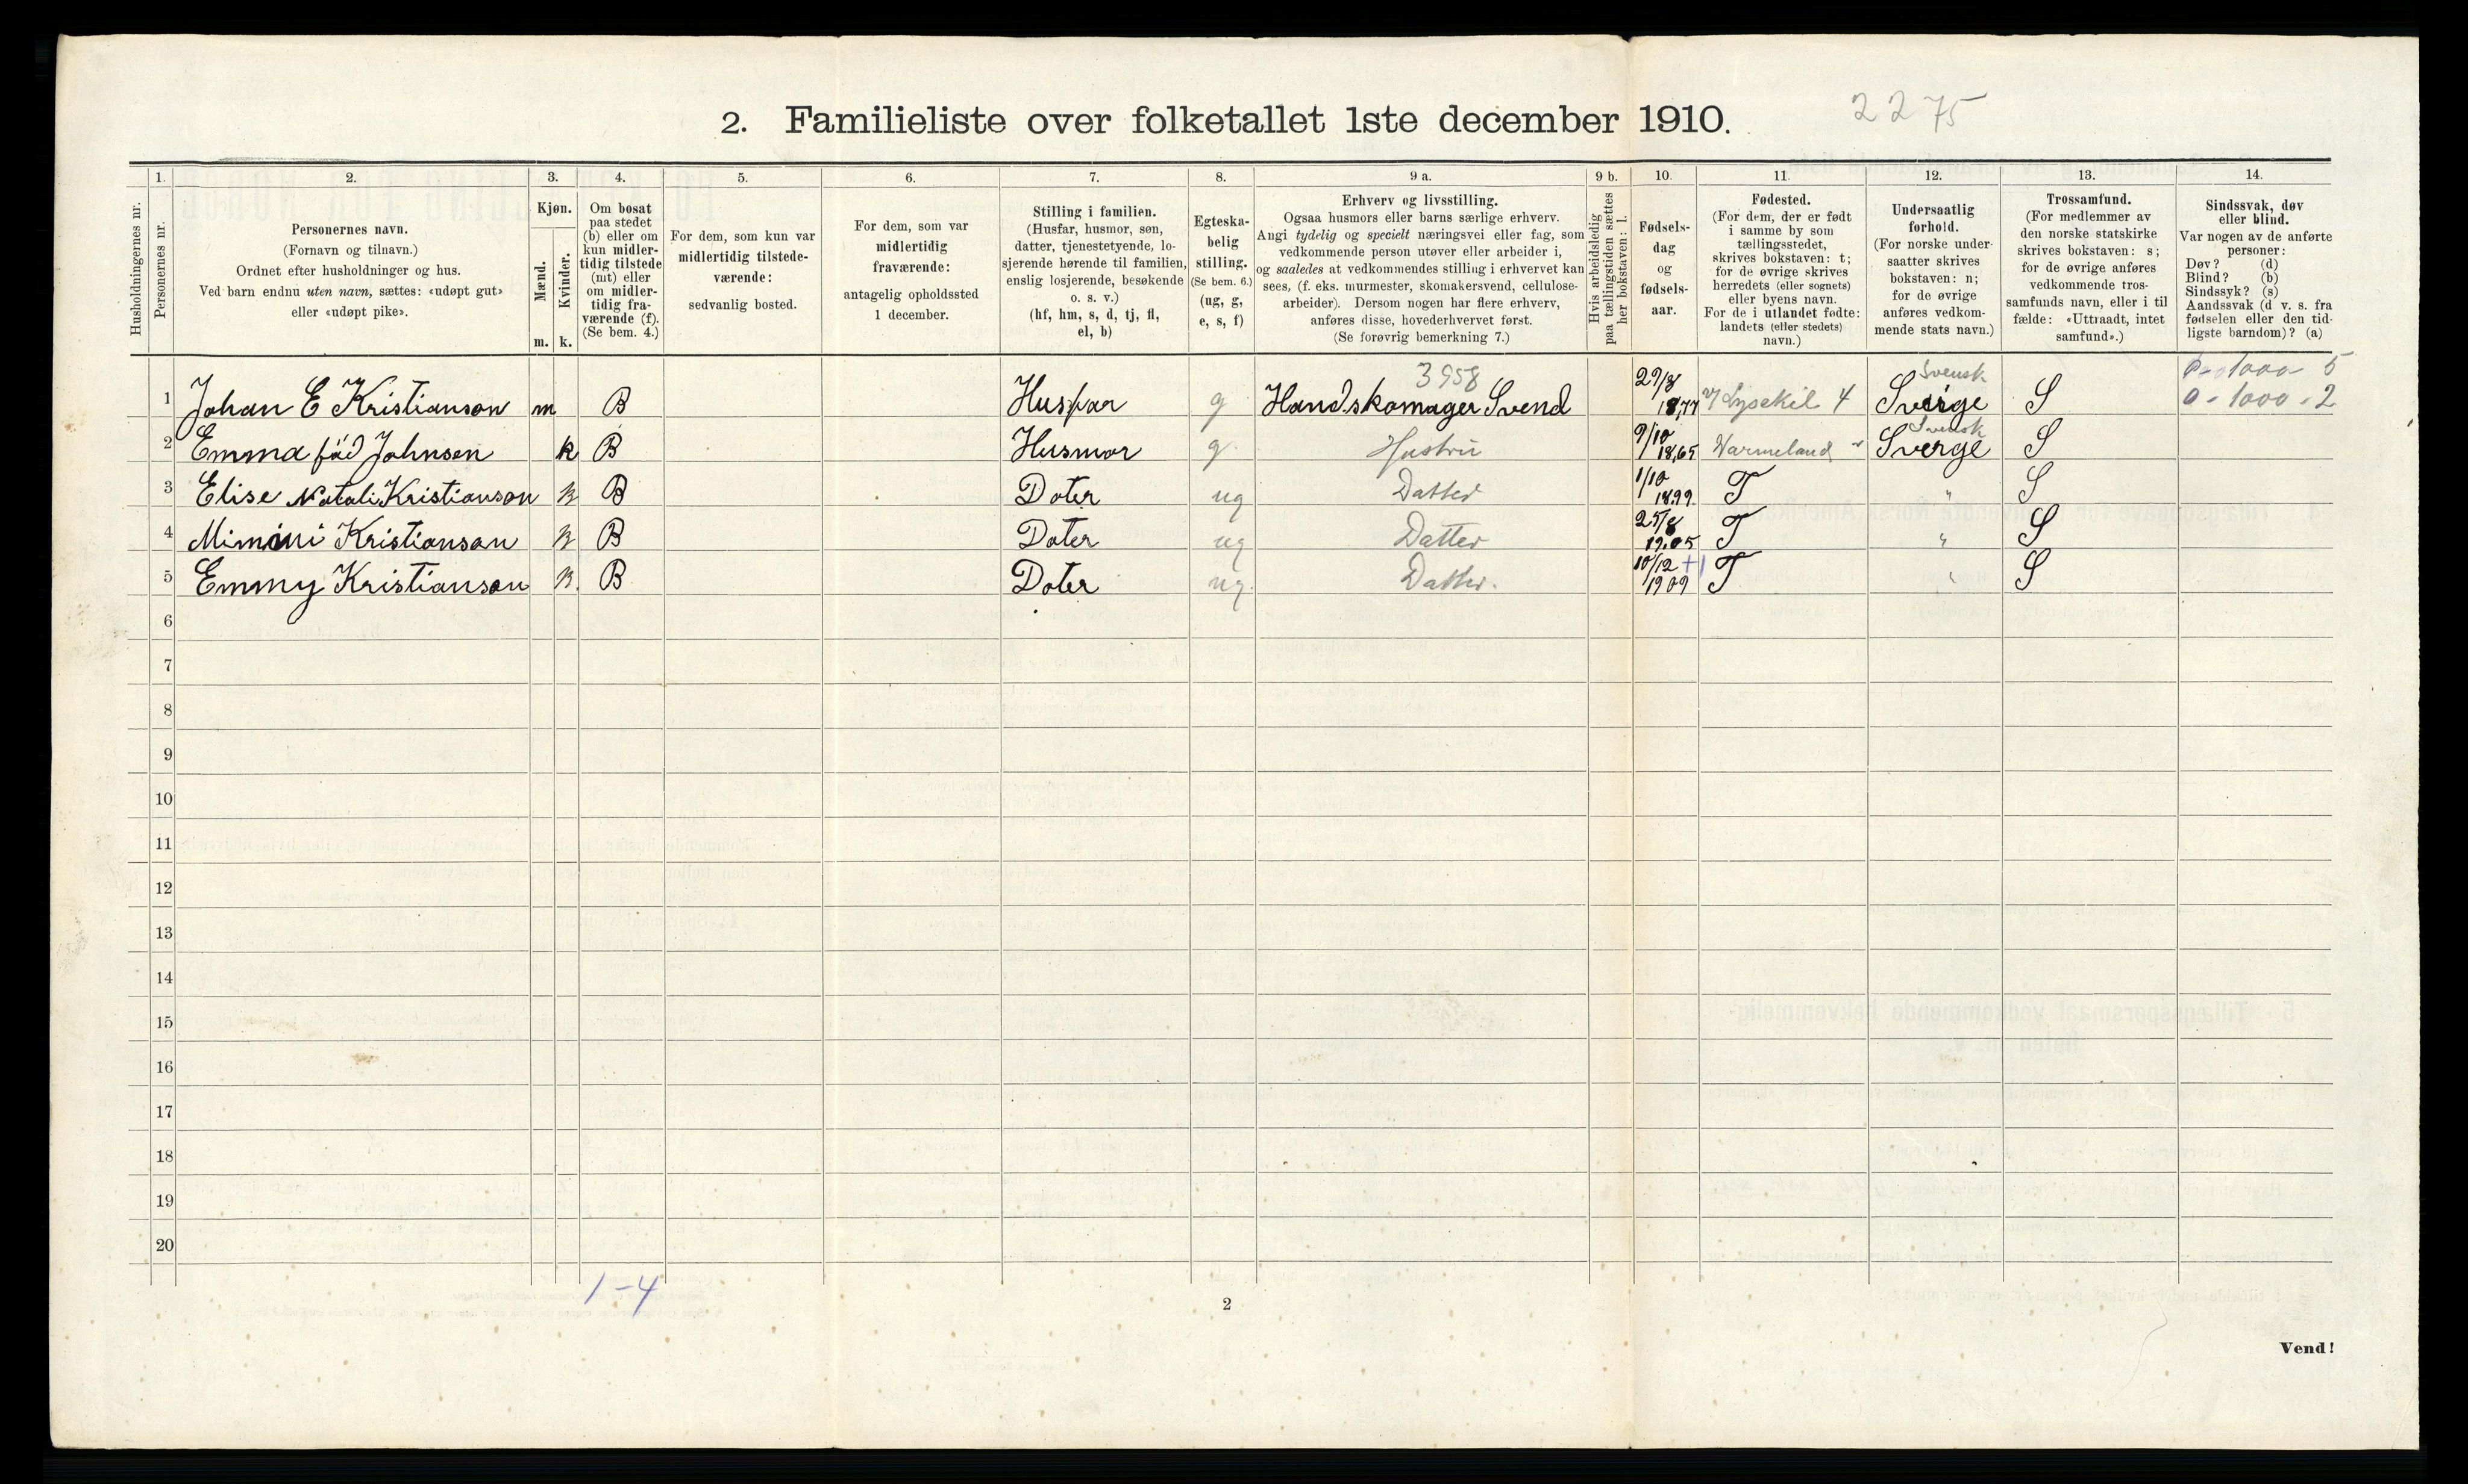 2. Familieliste over folketallet 1ste december 1910.
2275
1. 2. 3. 4. 5. 6. 7. 8. 9 a. 9 b. 10. 11. 12. 13. 14.
Husholdningernes nr.
Personernes nr.
Personernes navn.
(Fornavn og tilnavn.)
Ordnet efter husholdninger og hus.
Ved barn endnu uten navn, sættes: «udøpt gut»
eller «udøpt pike».
Kjøn.
Mænd.
Kvinder.
m. k.
Om bosat
paa stedet
(b) eller om
kun midler-
tidig tilstede
(mt) eller
om midler-
tidig fra-
værende (f).
(Se bem. 4.)
For dem, som kun var
midlertidig tilstede-
værende:
sedvanlig bosted.
For dem, som var
midlertidig
fraværende:
antagelig opholdssted
1 december.
Stilling i familien.
(Husfar, husmor, søn,
datter, tjenestetyende, lo-
sjerende hørende til familien,
enslig losjerende, besøkende
o. s. v.)
(hf, hm, s, d, tj, fl,
el, b)
Egteska-
belig
stilling.
(Se bem. 6.)
(ug, g,
e, s, f)
Erhverv og livsstilling.
Ogsaa husmors eller barns særlige erhverv.
Angi tydelig og specielt næringsvei eller fag, som
vedkommende person utøver eller arbeider i,
og saaledes at vedkommendes stilling i erhvervet kan
sees, (f. eks. murmester, skomakersvend, cellulose-
arbeider). Dersom nogen har flere erhverv,
anføres disse, hovederhvervet først.
(Se forøvrig bemerkning 7.)
Hvis arbeidsledig
paa tællingstiden sættes
her bokstaven: l.
Fødsels-
dag
og
fødsels-
aar.
Fødested.
(For dem, der er født
i samme by som
tællingsstedet,
skrives bokstaven: t;
for de øvrige skrives
herredets (eller sognets)
eller byens navn.
For de i utlandet fødte:
landets (eller stedets)
navn.)
Undersaatlig
forhold.
(For norske under-
saatter skrives
bokstaven: n;
for de øvrige
anføres vedkom-
mende stats navn.)
Trossamfund.
(For medlemmer av
den norske statskirke
skrives bokstaven: s;
for de øvrige anføres
vedkommende tros-
samfunds navn, eller i til
fælde: «Uttraadt, intet
samfund».)
Sindssvak, døv
eller blind.
Var nogen av de anførte
personer:
Døv? (d)
Blind? (b)
Sindssyk? (s)
Aandssvak (d v. s. fra
fødselen eller den tid-
ligste barndom)? (a)
3958 Svensk 0-1000-5
1 Johan E Kristianson m B Husfar g Handskomager Svend 29/8 1877 Lysekil 4 Sverige S 0-1000-2
Svensk
2 Emma föd Johnsen k B Husmor g. Hustru 9/10 18,65 Warmeland " Sverge S
3 Elise Natali Kristianson k B Doter ug Datter 1/10 1899 T " S
4 Mimini Kristianson k B Doter ug Datter 25/8 19.05 T " S
5 Emmy Kristianson k. B Doter ug. Datter. 10/12 +1 1909 T " S
6
7
8
9
10
11
12
13
14
15
16
17
18
19
20
1-4
2
Vend!